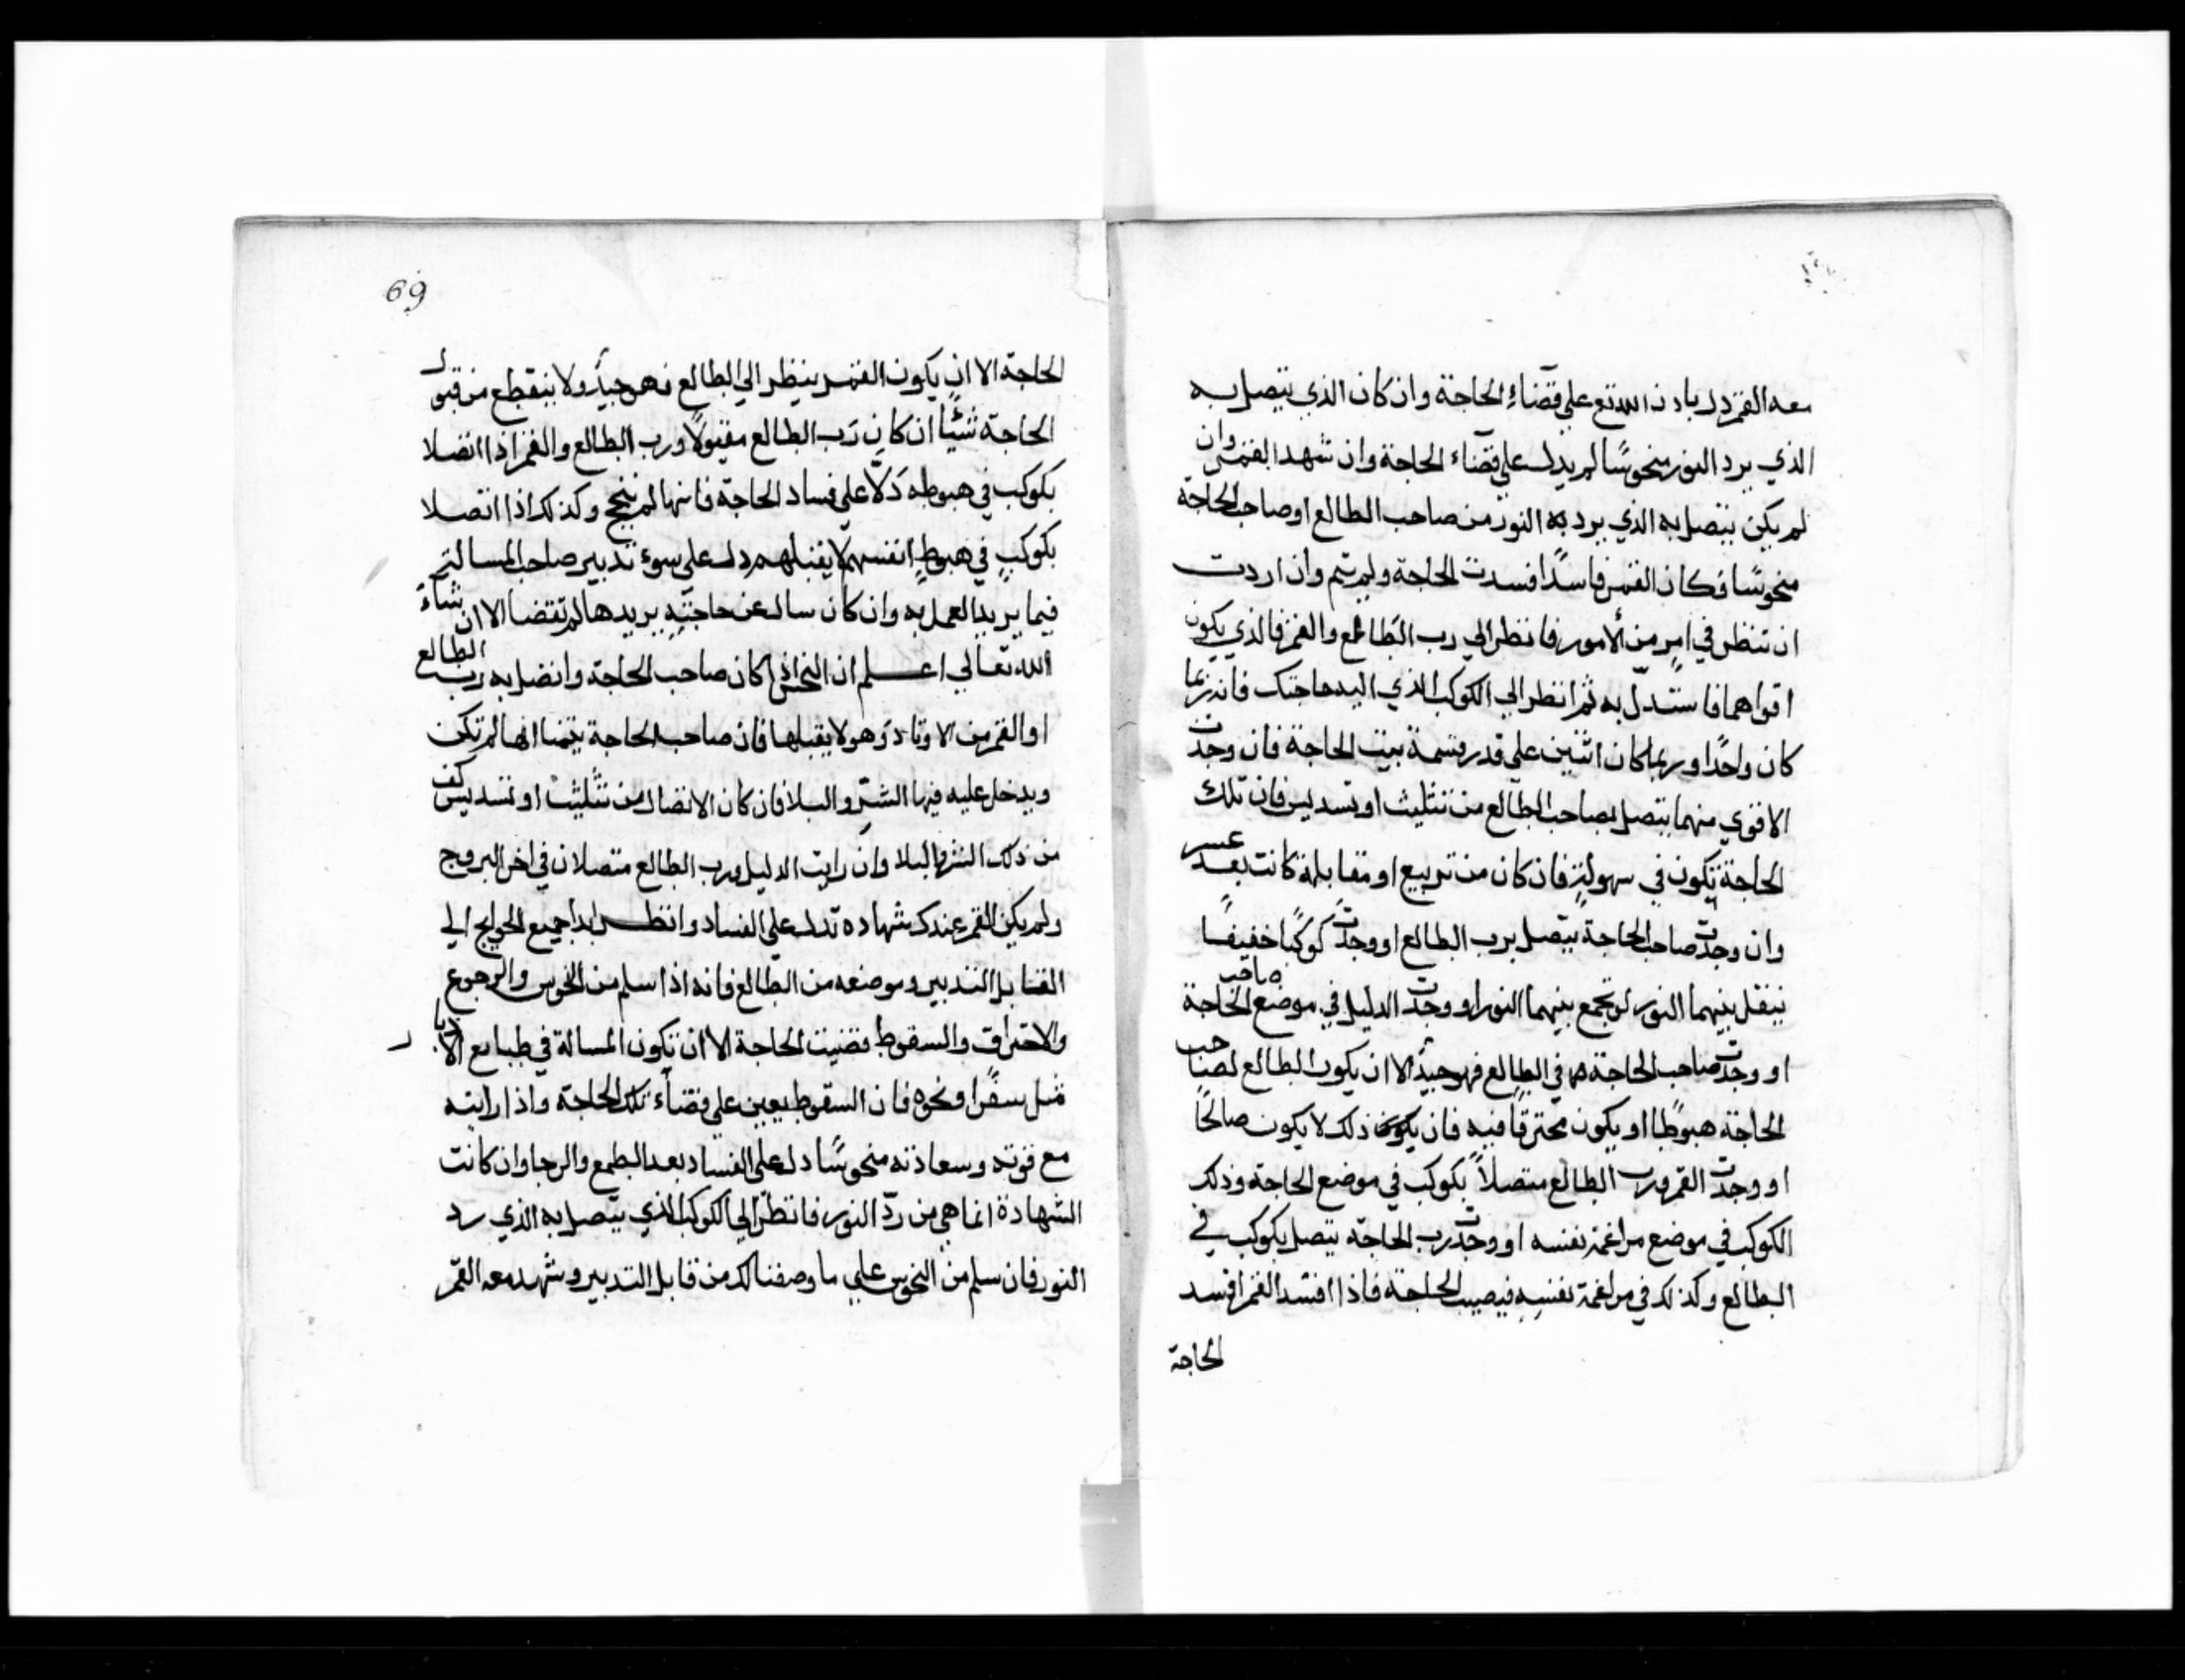 معه القمر دل باذن الله تع على قضاء الحاجة وان كان الذي يتصل به
الذي يرد النور منحوسًا لم يدل على قضاء الحاجة وان شهد القمر وان
لم يكن يتصل به الذي يرد به النور من صاحب الطالع او صاحب الحاجة
منحوسًا فكان القمر فاسدًا فسدت الحاجة ولم تتم وان اردت
ان تنظر في امرٍ من الأمور فانظر الي رب الطالع والقمر فالذي يكون
اقواهما فاستدلّ به ثم انظر الي الكوكب الذي اليه حاجتك فانه ربما
كان واحدًا وربما كان اثنين علي قدر قسمة بيت الحاجة فان وجدت
الاقوي منهما يتصل بصاحب الطالع من تثليث او تسديس فان تلك
الحاجة تكون في سهولةٍ فان كان من تربيع او مقابلة كانت بعد عسر
وان وجدت صاحب الحاجة يتصل برب الطالع او وجدت كوكبًا خفيفًا
ينقل بينهما النور او يجمع بينهما النور او وجدت الدليل في موضع صاحب الحاجة
او وجدت صاحب الحاجة في الطالع فهو جيدٌ الا ان يكون الطالع لصاحب
الحاجة هبوطًا او يكون محترقًا فيه فان يكون ذلك لا يكون صالحًا
او وجدت القمر ورب الطالع متصلاً بكوكب في موضع الحاجة وذلك
الكوكب في موضع مراغمة نفسه او وجدت رب الحاجة يتصل بكوكب في
الطالع وكذلك في مراغمة نفسه فيصيب الحاجة فاذا افسد القمر افسد
الحاجة
69
الحاجة الا ان يكون القمر ينظر الي الطالع فهو جيدٌ ولا ينقطع من قبول
الحاجة شيئًا ان كان رب الطالع مقبولًا ورب الطالع والقمر اذا اتصلا
بكوكب في هبوطه دَلّا علي فساد الحاجة فانها لم تنجح وكذلك اذا اتصلا
بكوكبٍ في هبوط انفسهما لا يقبلهم دل علي سوء تدبير صاحب المسالة
فيما يريد العمل به وان كان سال عن حاجتهِ يريدها لم تقضا الا ان شآء
الله تعالي اعلم ان النحس اذا كان صاحب الحاجة واتصل به رب الطالع
او القمر من الاوتاد وهو لا يقبلها فان صاحب الحاجة يتمنا انها لم تكن
ويدخل عليه فيها الشر والبلا فان كان الاتصال من تثليث او تسديس كف
من ذلك الشر والبلا وان رايت الدليل ورب الطالع متصلان في اخر البروج
ولم يكن القمر عندك شهاده تدل علي الفساد وانظر ابدا جميع الحوايج الي
القابل التدبير وموضعه من الطالع فانه اذا سلم من النحوس والرجوع
والاحتراق والسقوط قضيت الحاجة الا ان تكون المسالة في طبايع
مثل سفرًا ونحوه فان السقوط يعين علي قضاء تلك الحاجة واذا رايته
مع قوته وسعادته منحوسًا دل علي الفساد بعد الطمع والرجا وان كانت
الشهادة انما هي من ردّ النور فانظر الي الكوكب الذي يتصل به الذي يرد
النور فان سلم من النحوس علي ما وصفنا لك من قابل التدبير وشهد معه القمر